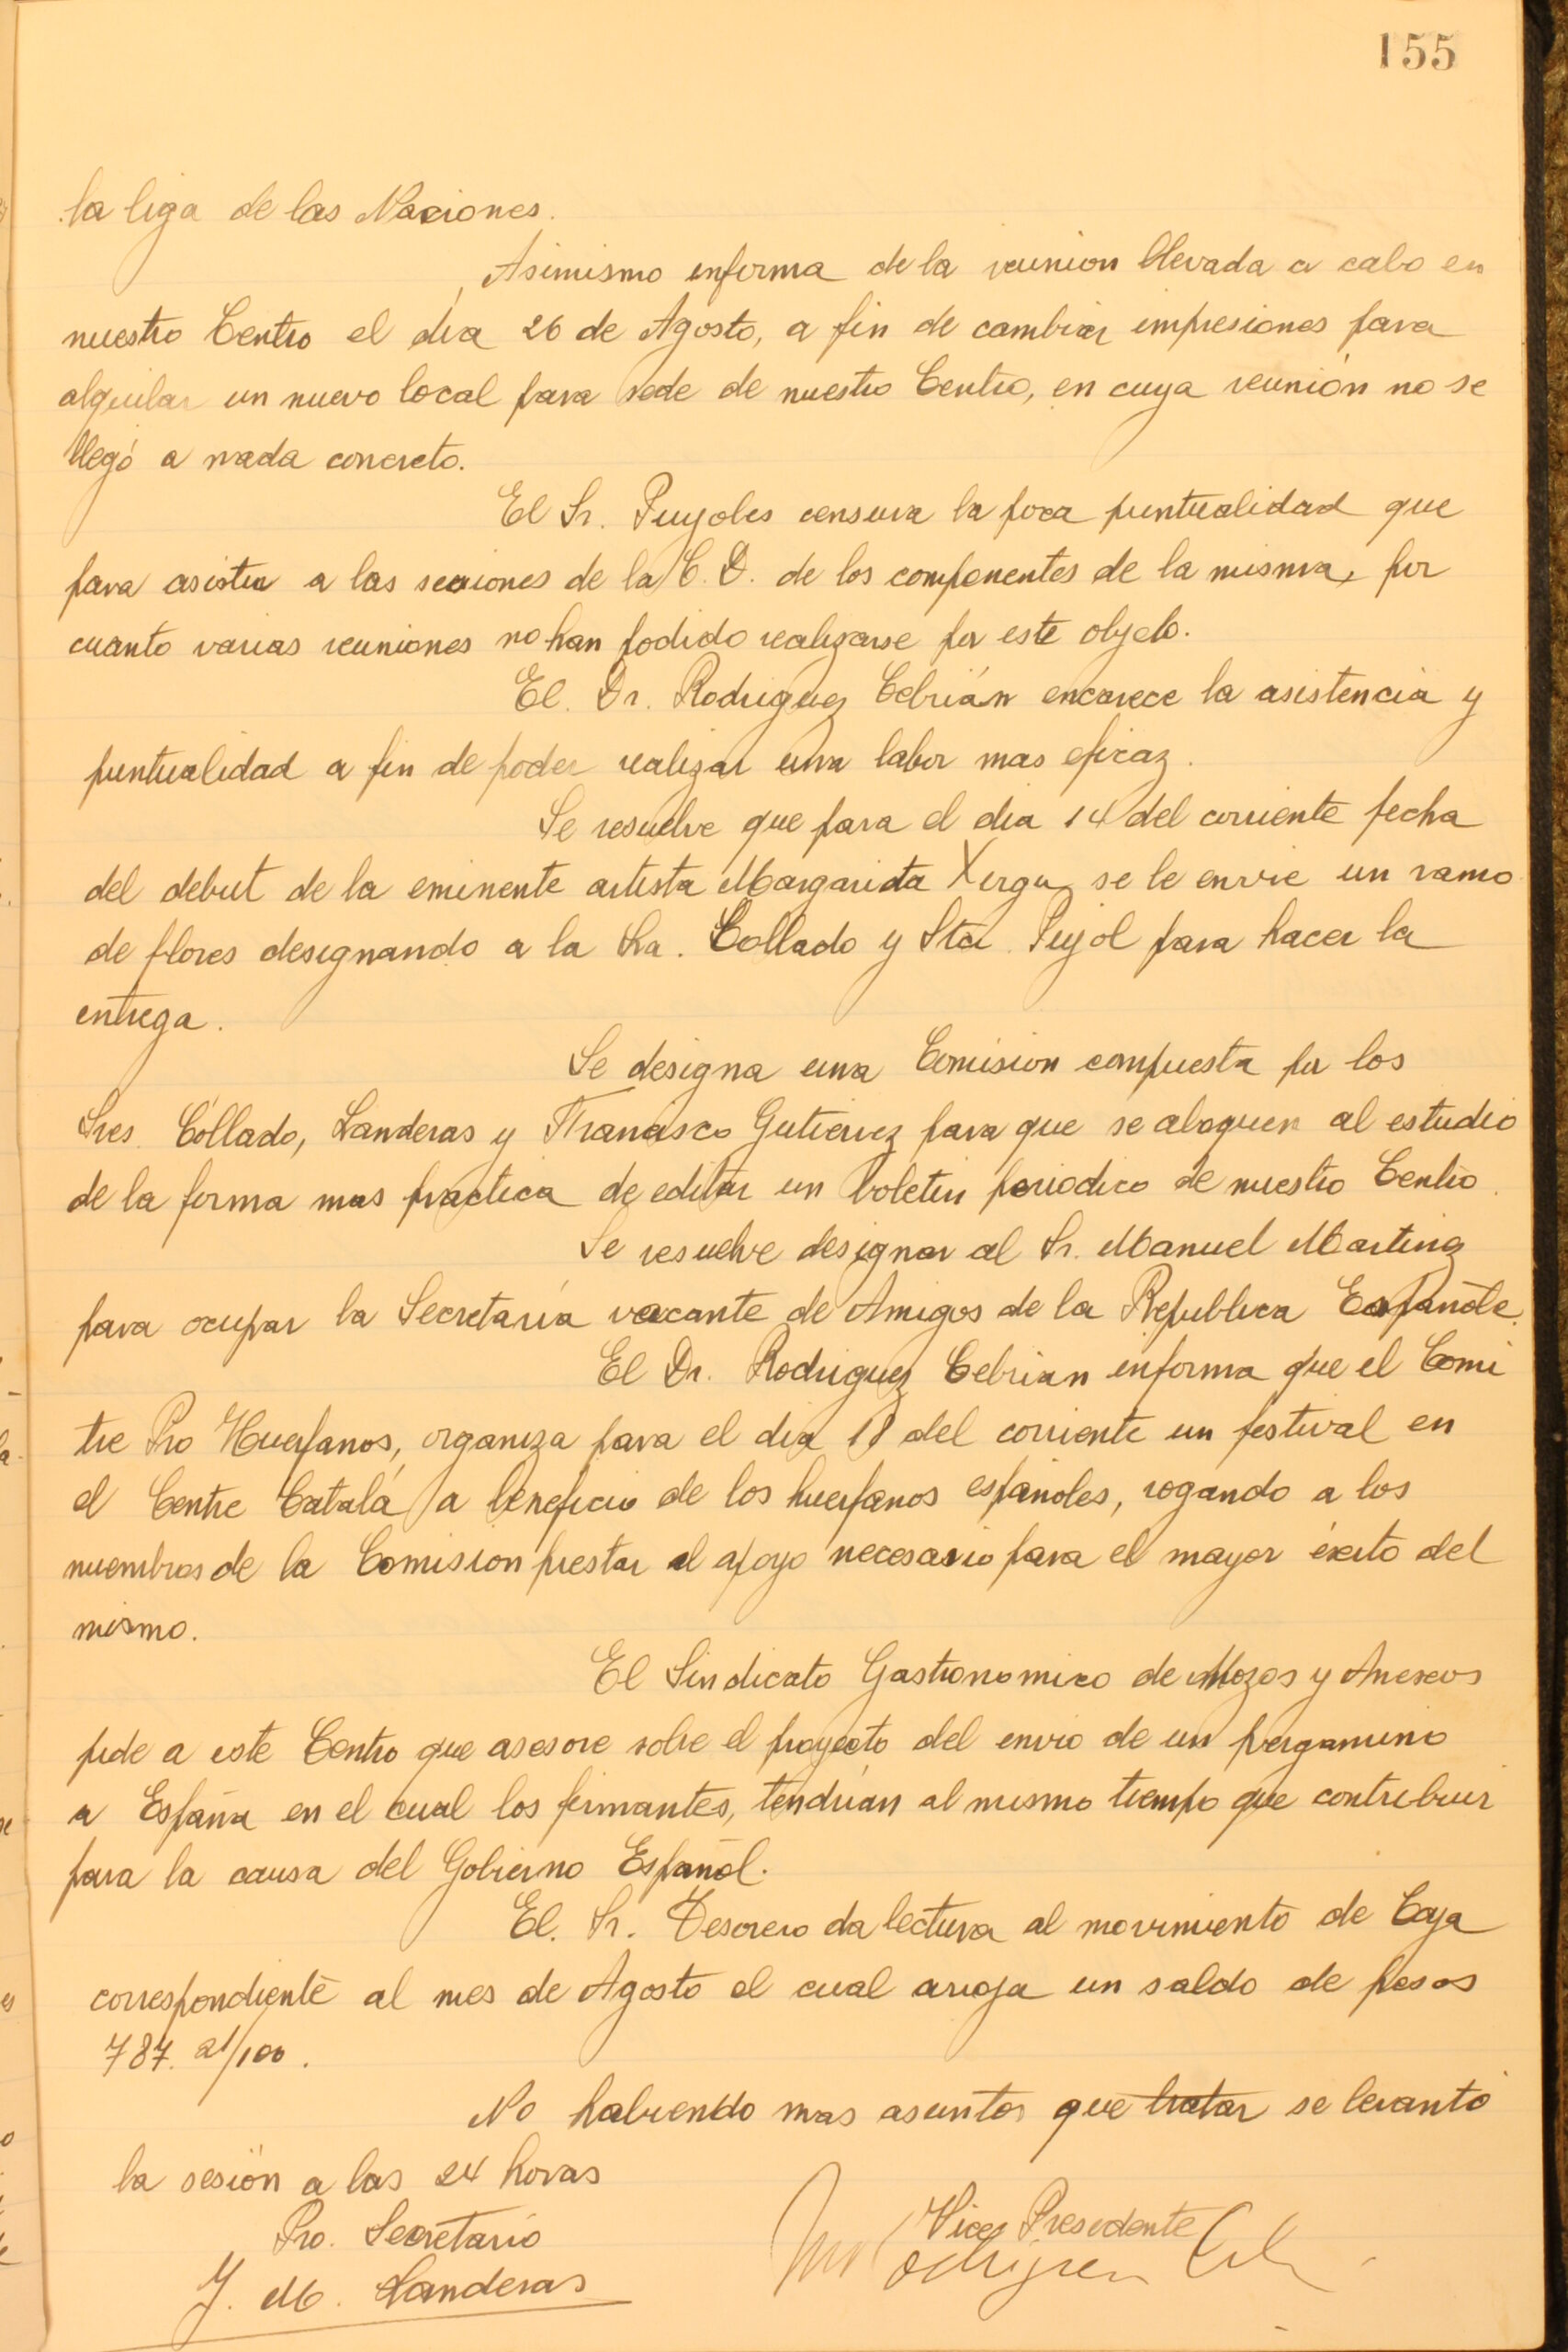 155
la liga de las Naciones.
Asimismo informa de la reunion llevada a cabo en
nuestro Centro el día 26 de Agosto, a fin de cambiar impresiones para
alquilar un nuevo local para sede de nuestro Centro, en cuya reunión no se
llegó a nada concreto.
El Sr. Puyoles censura la poca puntualidad que
para asistir a las sesiones de la C. D. de los componentes de la misma, por
cuanto varias reuniones no han podido realizarse por este objeto.
El. Dr. Rodriguez Cebrián encarece la asistencia y
puntualidad a fin de poder realizar una labor mas eficaz.
Se resuelve que para el dia 14 del corriente fecha
del debut de la eminente artista Margarita Xirgu se le envie un ramo
de flores designando a la Sra. Collado y Sta. Pujol para hacer la
entrega.
Se designa una Comision compuesta por los
Sres. Collado, Landeras y Francisco Gutierrez para que se aboquen al estudio
de la forma mas practica de editar un boletin periodico de nuestro Centro.
Se resuelve designar al Sr. Manuel Martinez
para ocupar la Secretaría vacante de Amigos de la Republica Española.
El Dr. Rodriguez Cebrian informa que el Comi
tre Pro Huerfanos, organiza para el dia 18 del corriente un festival en
el Centre Catalá a beneficio de los huerfanos españoles, rogando a los
miembros de la Comision prestar el apoyo necesario para el mayor éxito del
mismo.
El Sindicato Gastronomico de Mozos y Anexos
pide a este Centro que asesore sobre el proyecto del envio de un pergamino
a España en el cual los firmantes, tendrian al mismo tiempo que contribuir
para la causa del Gobierno Español.
El. Sr. Tesorero da lectura al movimiento de Caja
correspondiente al mes de Agosto el cual arroja un saldo de pesos
787. 21/100.
No habiendo mas asuntos que tratar se levantó
la sesión a las 24 horas
Pro. Secretario
Vice Presidente
J. M. Landeras